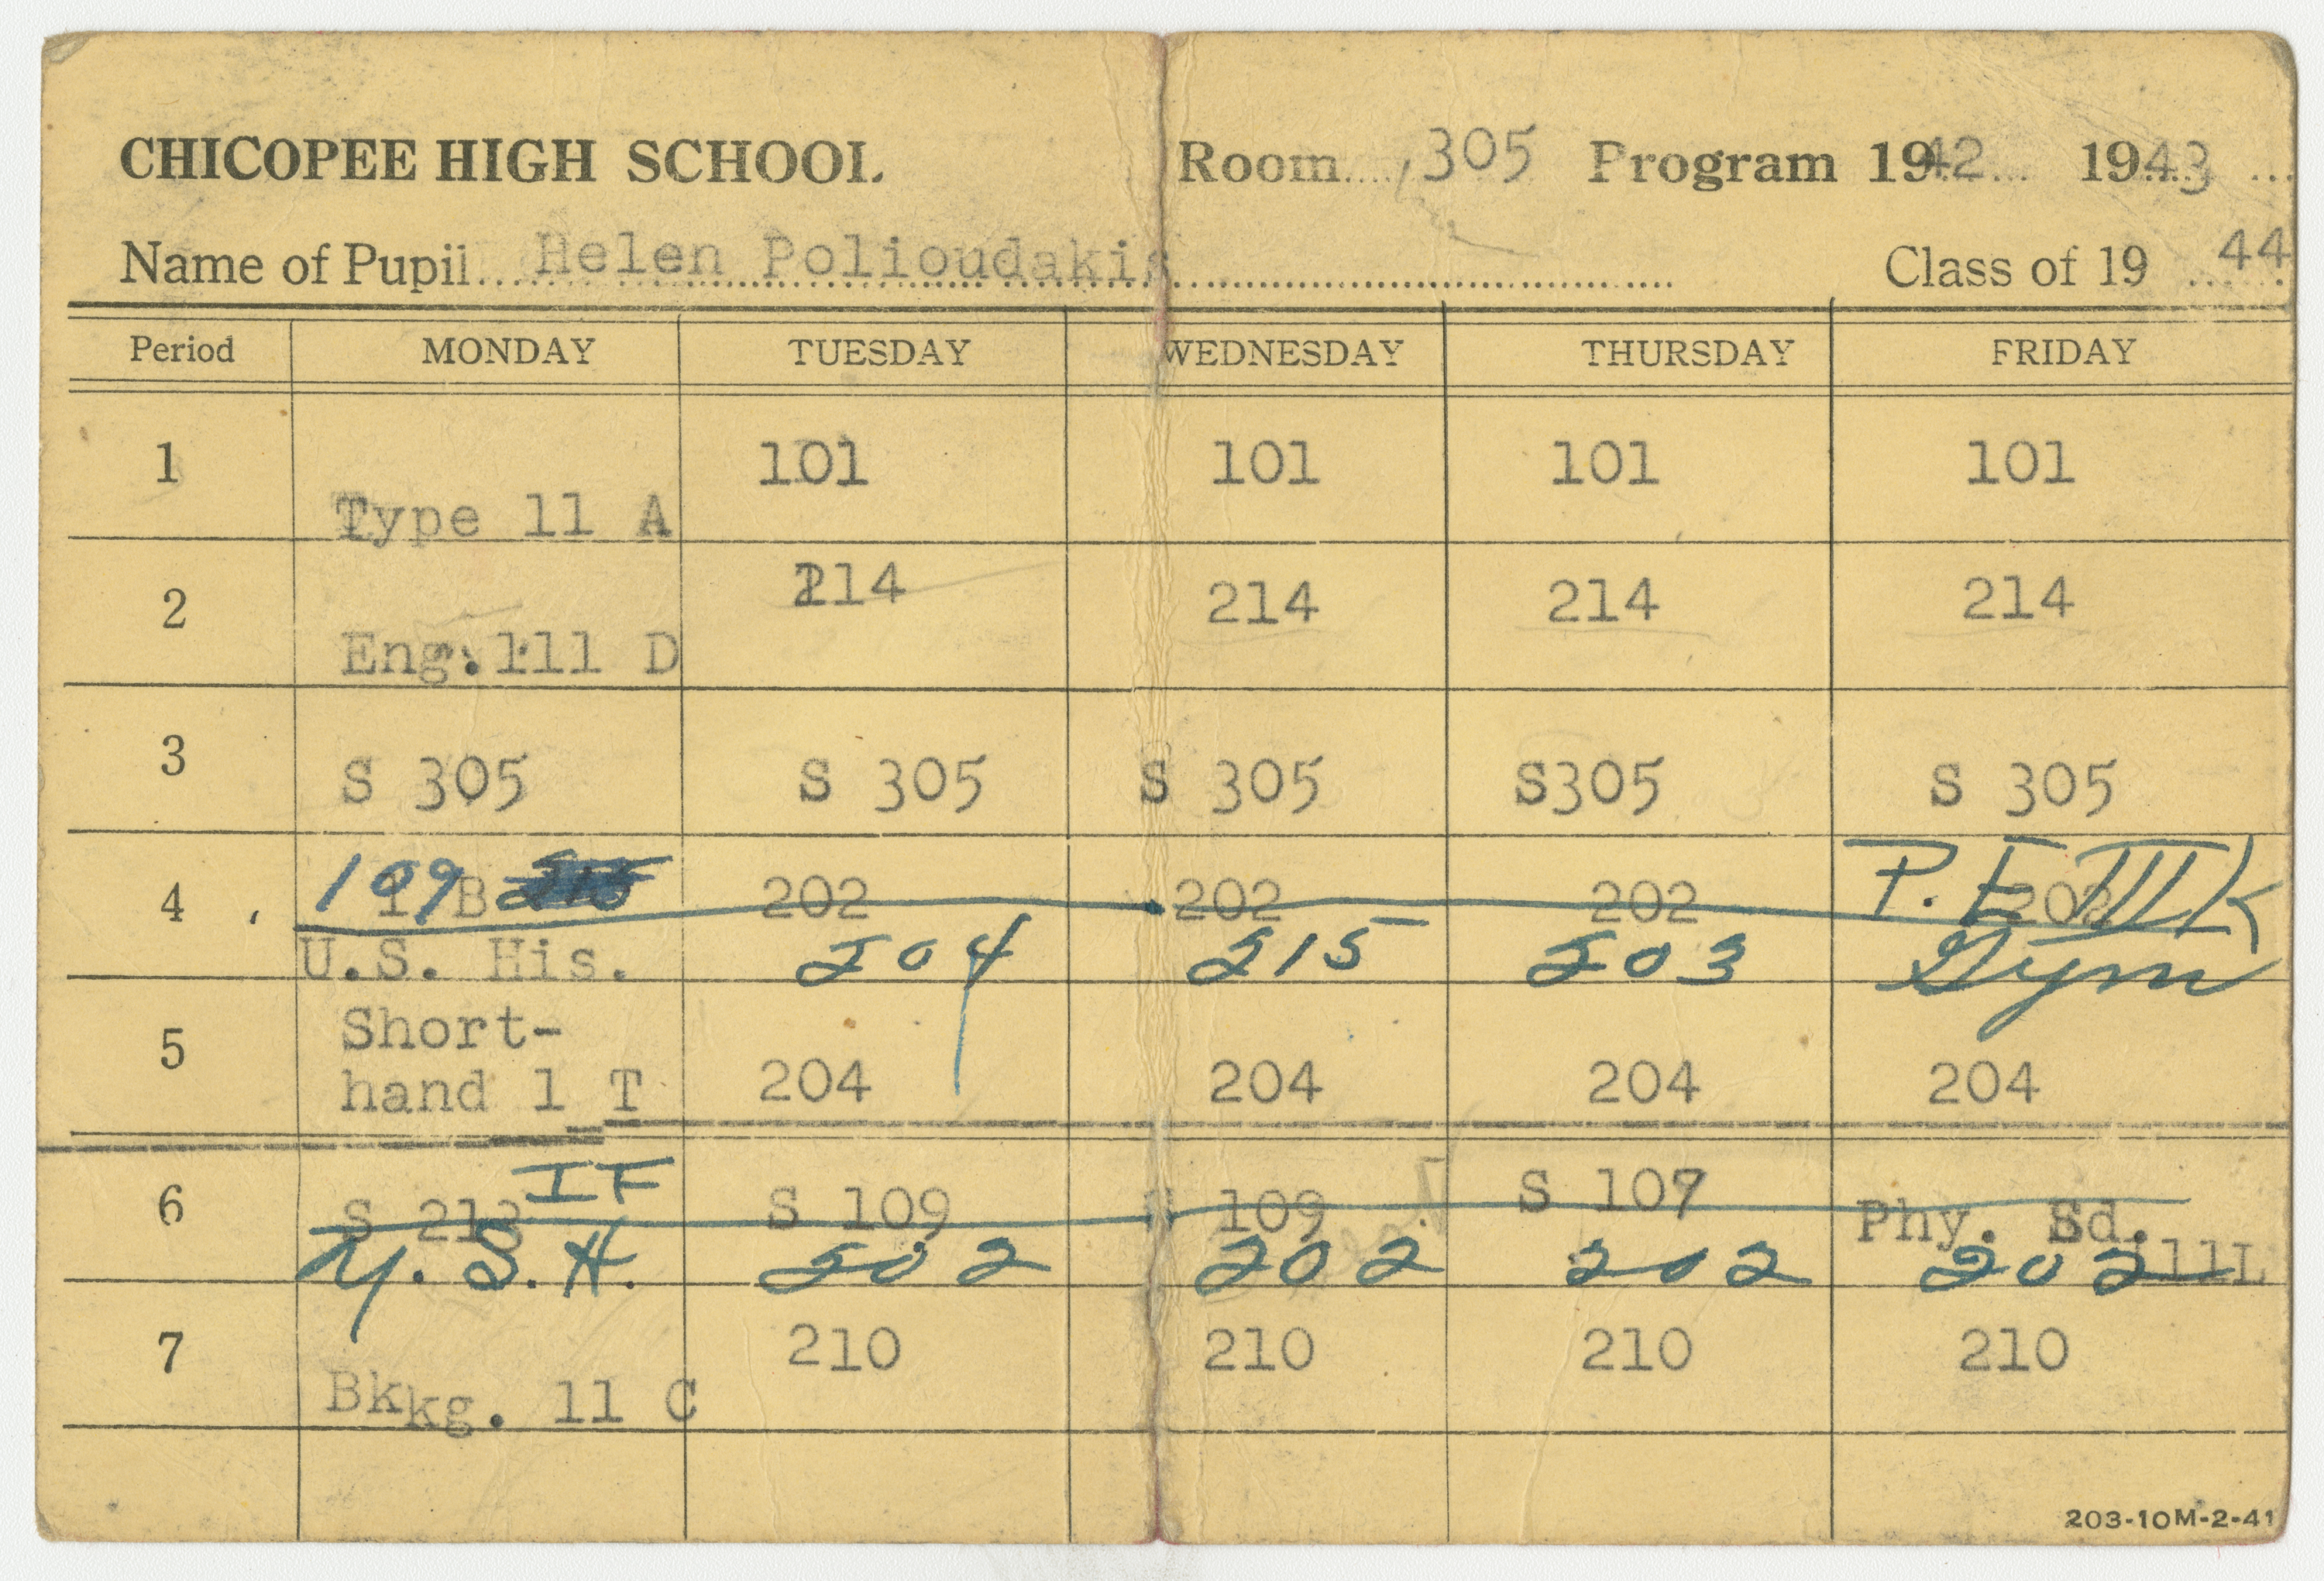 CHICOPEE HIGH SCHOOL Room 305 Program 1942 1943
Name of Pupil Helen Polioudakis Class of 19 44
Period MONDAY TUESDAY WEDNESDAY THURSDAY FRIDAY
1 Type 11 A 101 101 101 101
2 Eng. 111 D 214 214 214 214
3 S 305 S 305 S 305 S305 S 305
4 109 B 202 202 202 202 P. E III K
U.S. His. 204 215 203 Gym
5 Short-
hand 1 T 204 204 204 204
6 S 213 I F S 109 S 109 S 107 Phy. Ed. 111L
U. S. H. 202 202 202 202
7 Bkkg. 11 C 210 210 210 210
203-10M-2-41